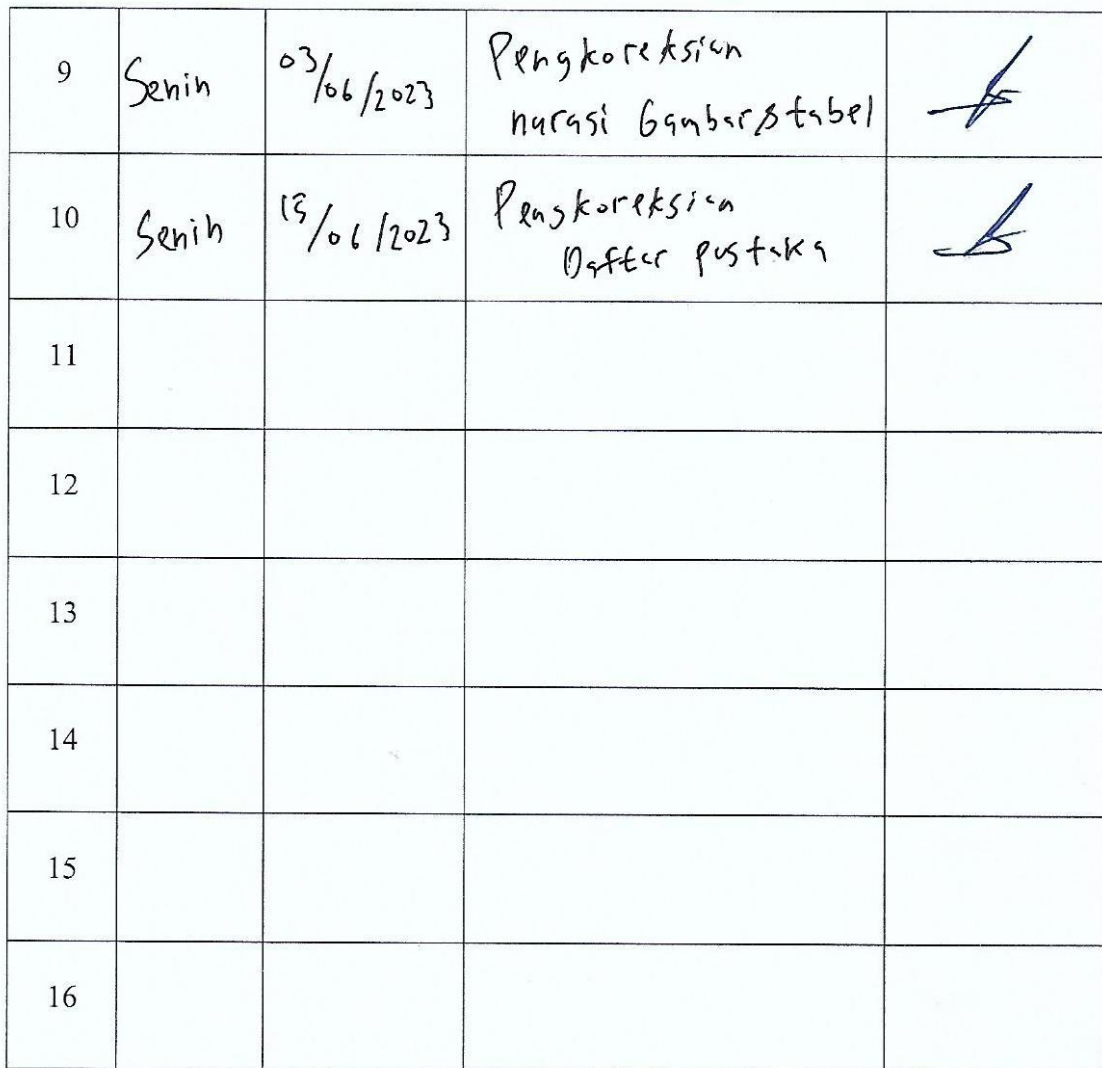 9 Senin 03/06/2023 Pengkoreksian
narasi Gambar & tabel
10 Senin /06/2023 Pengkoreksian
Daftar pustaka
11
12
13
14
15
16